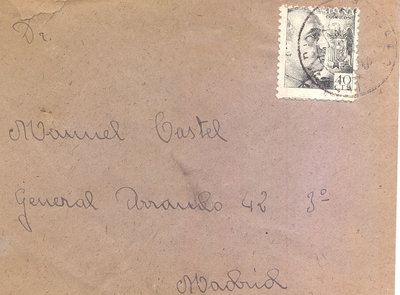 Dr.
ESPAÑA
40
CTS
Manuel Castel
General Arrando 42 3º
Madrid